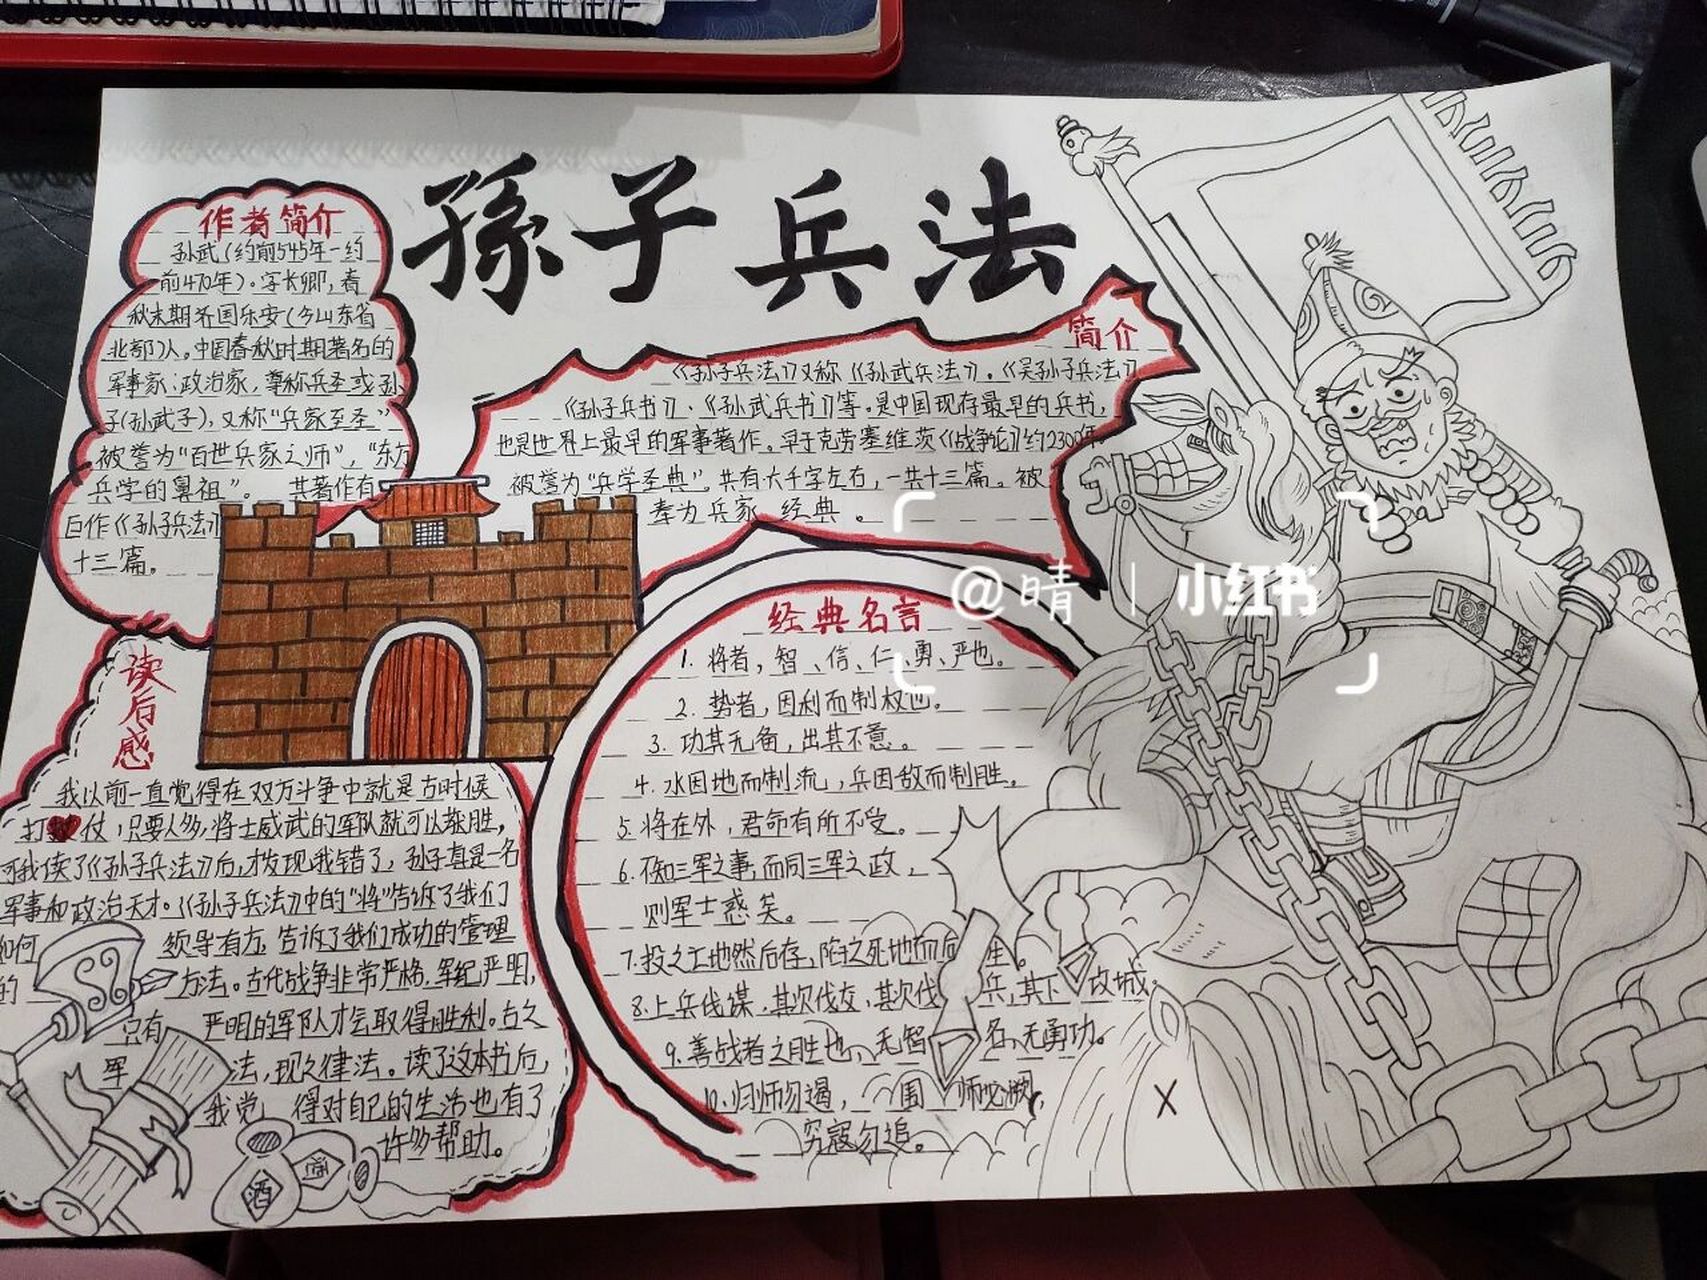 孫子兵法
作者简介
孙武(约前545年-约
前470年)。字长卿,春
秋末期齐国乐安(今山东省
北部)人。中国春秋时期著名的
军事家,政治家,尊称兵圣或孙
子(孙武子),又称"兵家至圣"
被誉为"百世兵家之师","东方
兵学的鼻祖"。 其著作有
巨作《孙子兵法》
十三篇。
简介
《孙子兵法》又称《孙武兵法》、《吴孙子兵法》
《孙子兵书》、《孙武兵书》等。是中国现存最早的兵书,
也是世界上最早的军事著作。早于克劳塞维茨《战争论》约2300年
被誉为"兵学圣典",共有六千字左右,一共十三篇。被
奉为兵家 经典。
读后感
我以前一直觉得在双方斗争中就是古时候
打仗,只要人多,将士威武的军队就可以获胜,
可我读了《孙子兵法》后,才发现我错了,孙子真是一名
军事和政治天才。《孙子兵法》中的"将"告诉了我们
如何 领导有方,告诉了我们成功的管理
的 方法。古代战争非常严格,军纪严明,
只有 严明的军队才会取得胜利。古之
军 法,现之律法。读了这本书后,
我觉 得对自己的生活也有了
许多帮助。
酒
经典名言
1. 将者,智、信、仁、勇、严也。
2. 势者,因利而制权也。
3. 功其无备,出其不意。
4. 水因地而制流,兵因敌而制胜。
5. 将在外,君命有所不受。
6. 不知三军之事,而同三军之政,
则军士惑矣。
7. 投之亡地然后存,陷之死地而后 生。
8. 上兵伐谋,其次伐交,其次伐 兵,其下 攻城。
9. 善战者之胜也,无智 名,无勇功。
10. 归师勿遏, 围 师必阙,
穷寇勿追。
@晴 | 小红书